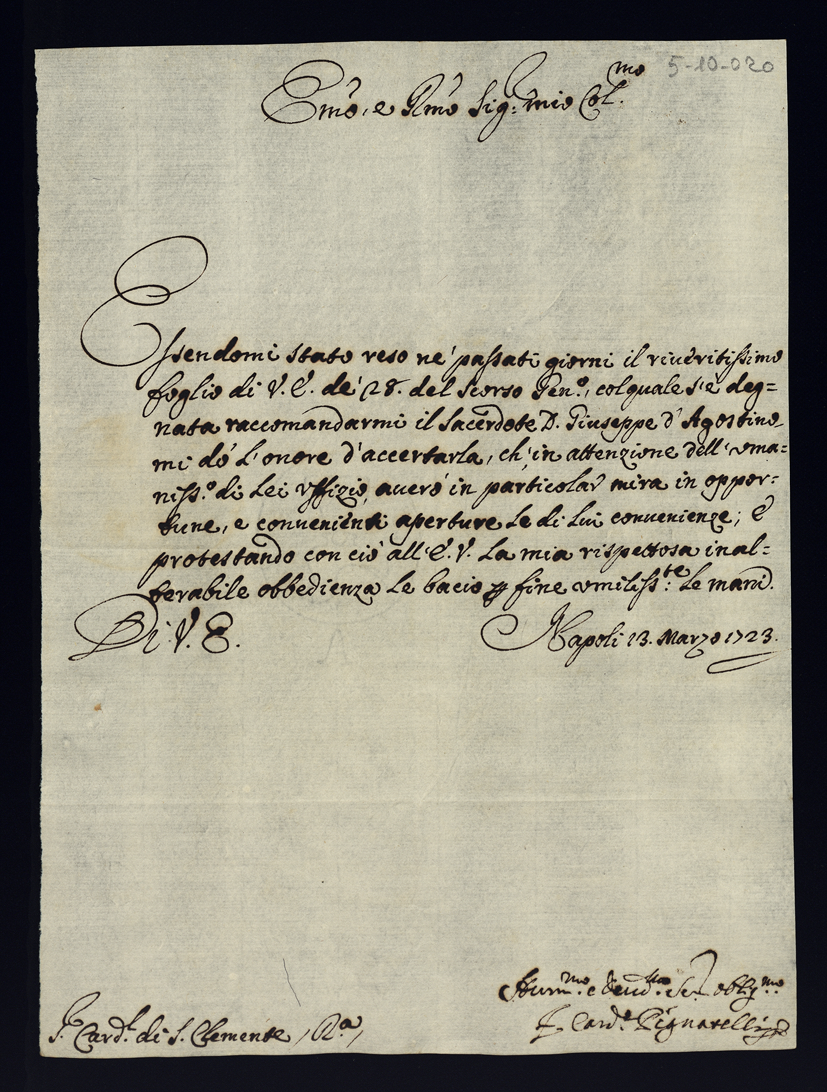 5-10-020
Emõ, e Rmõ Sig: mio Col.mo
Essendomi stato reso ne' passati giorni il riueritissimo
foglio di V. E. de' 28. del scorso Gen.o, col quale s'è deg=
nata raccomandarmi il Sacerdote D. Giuseppe d'Agostino,
mi dò l'onore d'accertarla, ch'in attenzione dell'uma=
niss.o di Lei uffizio, auerò in particolar mira in oppor=
tune, e convenienti aperture le di Lui convenienze; E
protestando con ciò all'E. V. la mia rispettosa inal=
terabile obbedienza le bacio per fine umiliss:te le mani.
Di V. E.
Napoli 13. Marzo 1723.
Hum.mo e deu.mo Ser. obblig.mo
F. Card.e Pignatelli
S.r Card.l di S. Clemente, R.a,